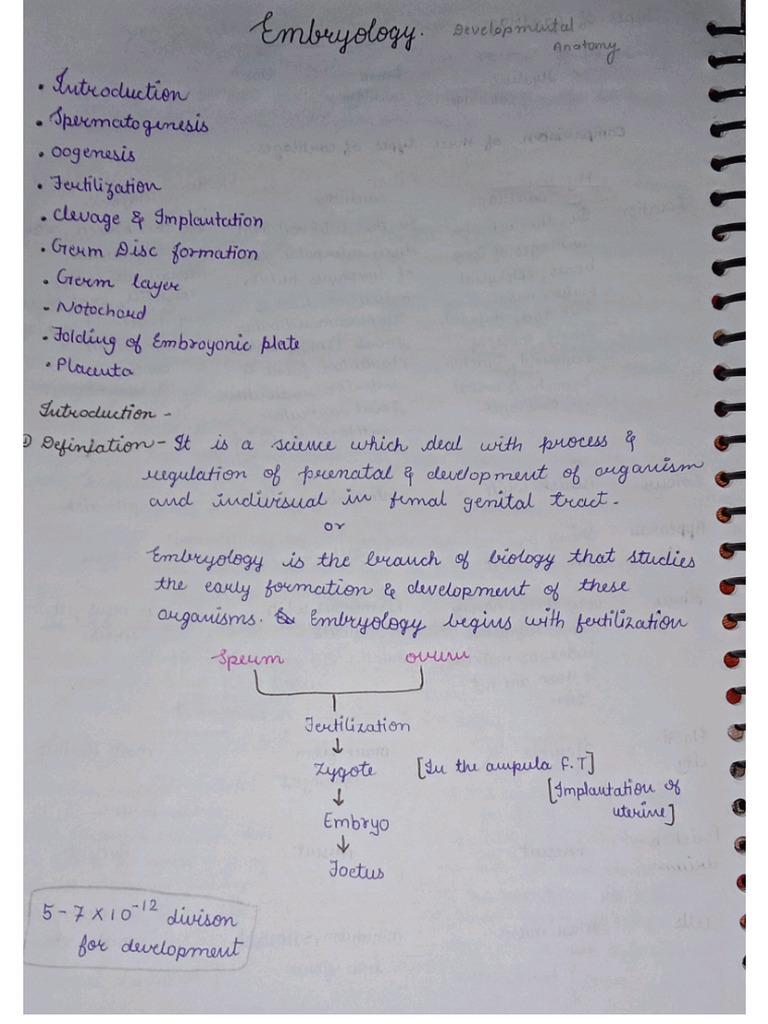 Embryology. Developmental
Anatomy
• Introduction
• Spermatogenesis
• oogenesis
• Fertilization
• Clevage & Implantation
• Germ Disc formation
• Germ layer
• Notochord
• Folding of Embroyonic plate
• Placenta
Introduction -
① Definiation - It is a science which deal with process &
regulation of prenatal & development of organism
and indivisual in fimal genital tract.
or
Embryology is the branch of biology that studies
the early formation & development of these
organisms. Embryology begins with fertilization
Sperm ovum
Fertilization
↓
Zygote [In the ampula F.T]
↓ [Implantation of
uterine]
Embryo
↓
Foetus
5-7×10⁻¹² divison
for development